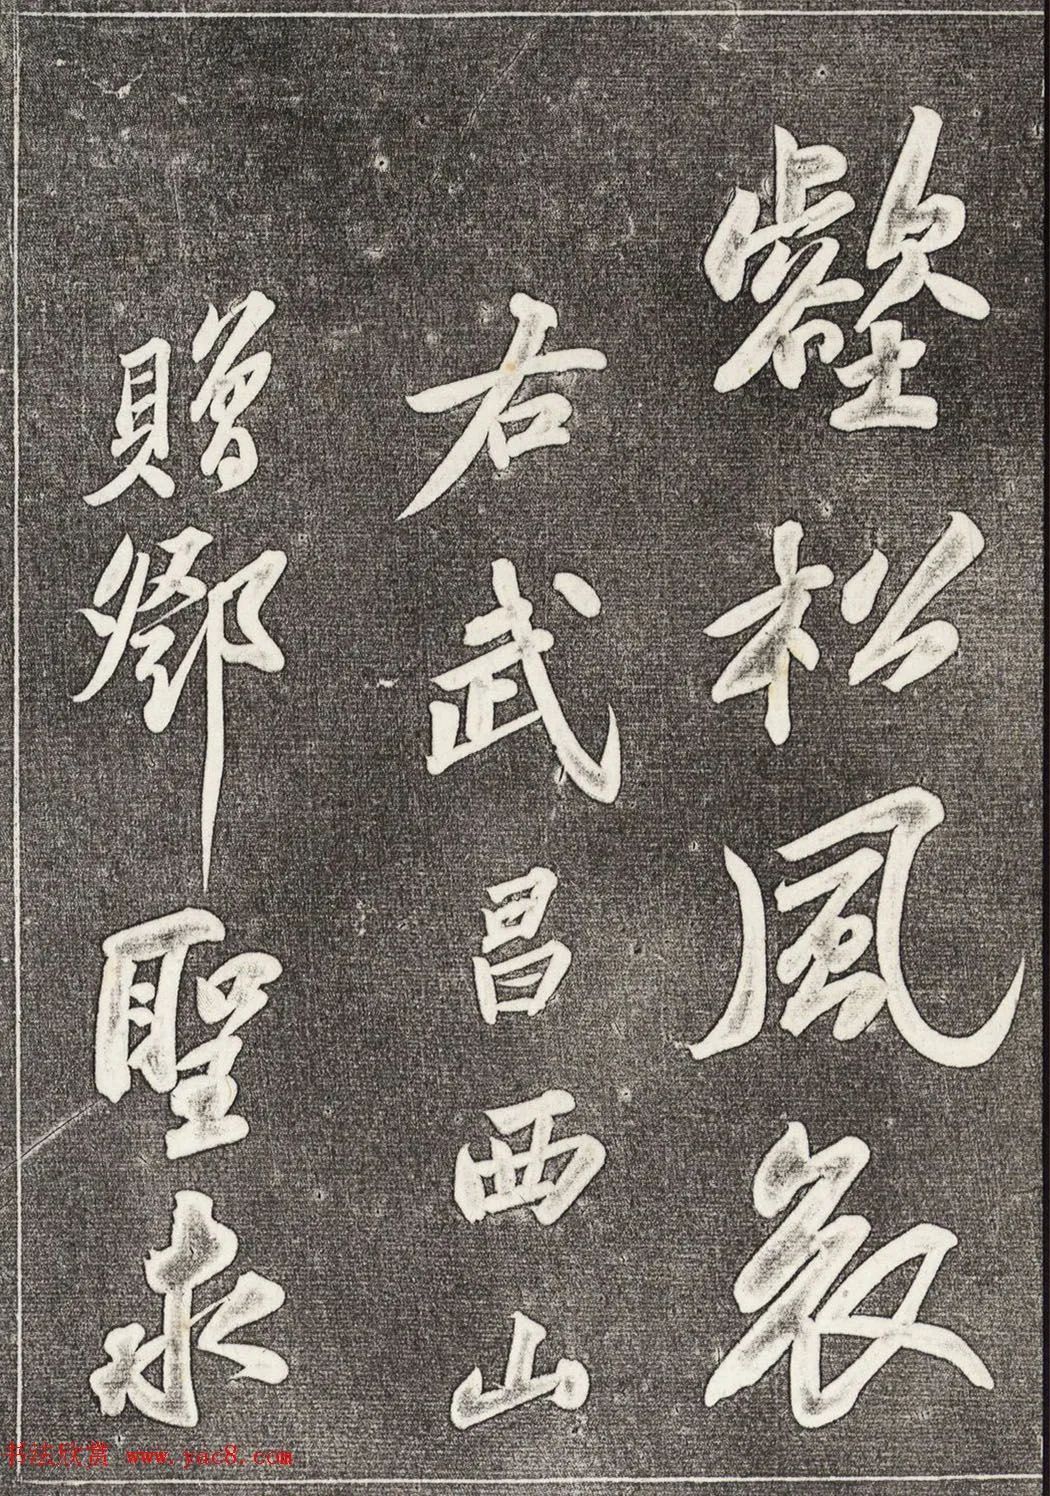 壑松風哀
右武昌西山
贈鄧聖求
书法欣赏 www.yac8.com